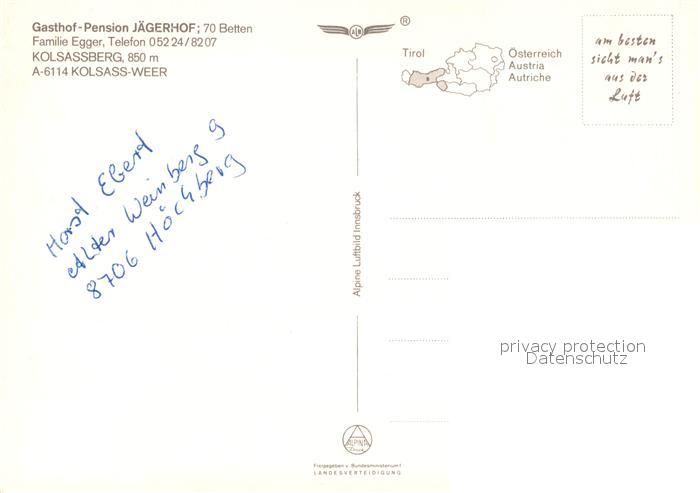 Gasthof-Pension JÄGERHOF; 70 Betten
Familie Egger, Telefon 0 52 24 / 82 07
KOLSASSBERG, 850 m
A-6114 KOLSASS-WEER
ALB
®
Tirol
Österreich
Austria
Autriche
am besten
sieht man's
aus der
Luft
Horst Ebert
Alter Weinberg 9
8706 Höchberg
Alpine Luftbild Innsbruck
privacy protection
Datenschutz
ALPINA
Druck
Freigegeben v. Bundesministerium f.
LANDESVERTEIDIGUNG